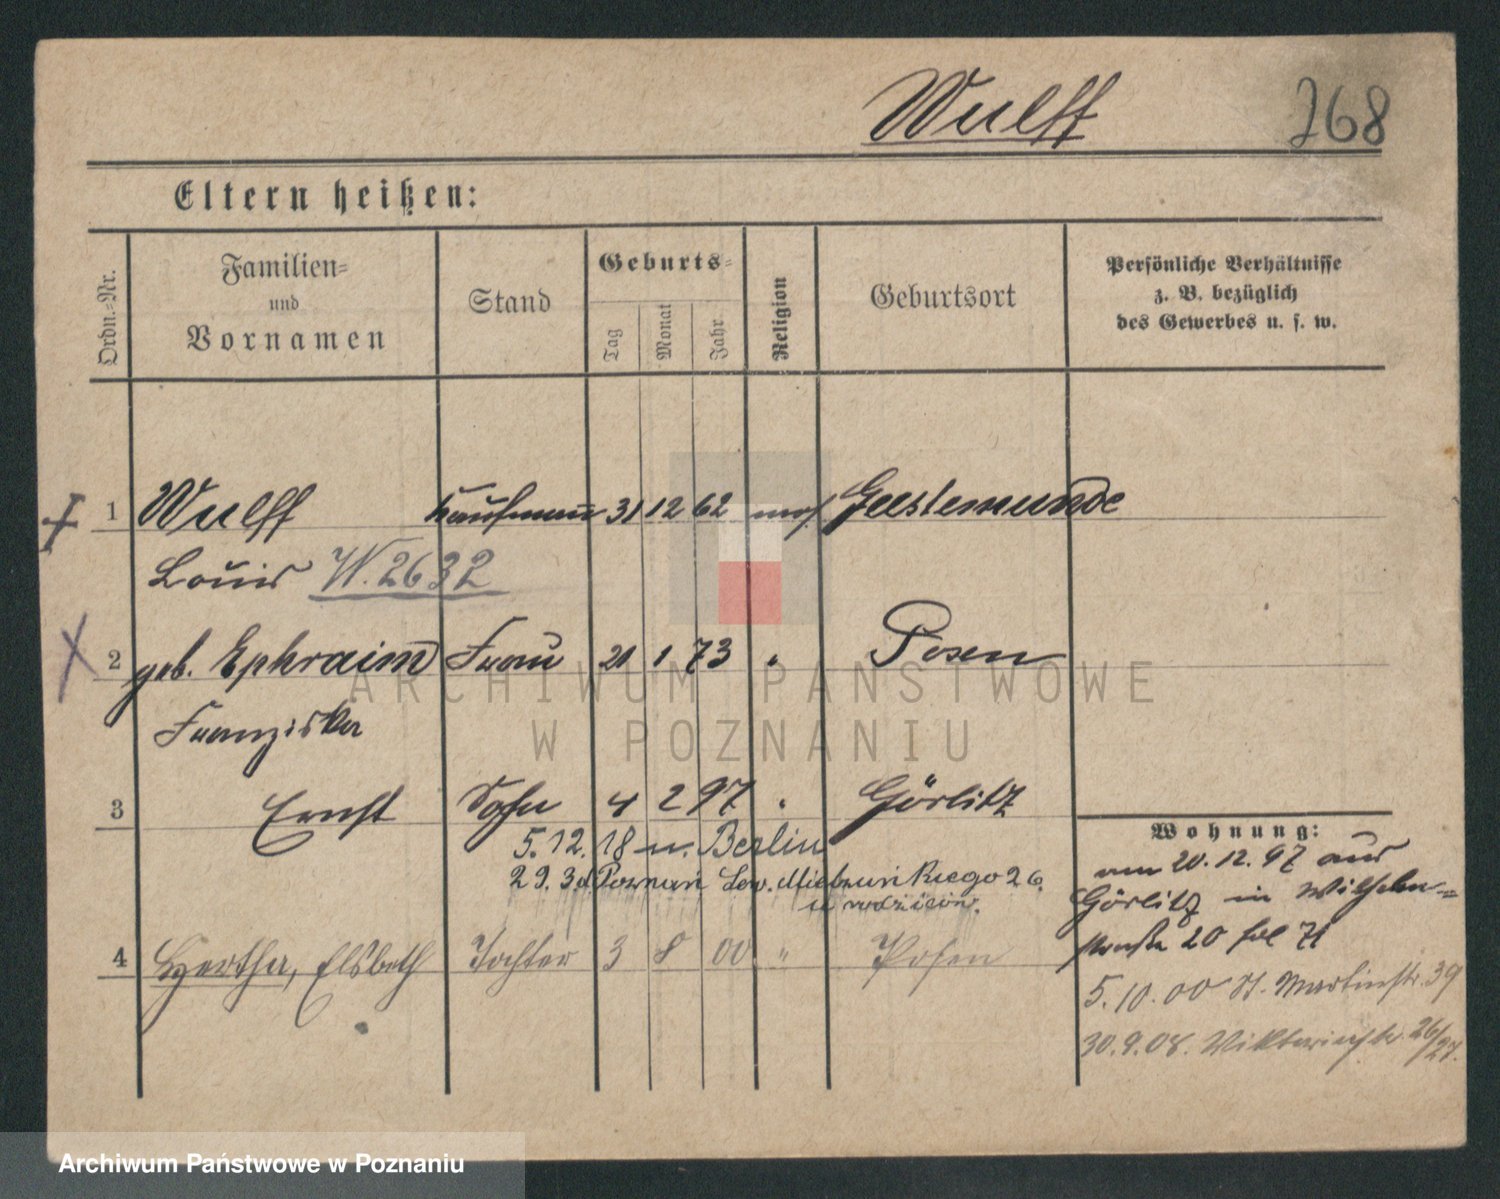 Wulff 268
Eltern heißen:
Ordn.-Nr.
Familien-
und
Vornamen
Stand
Geburts-
Tag Monat Jahr
Religion
Geburtsort
Persönliche Verhältnisse
z. B. bezüglich
des Gewerbes u. s. w.
1 Wulff Kaufmann 31 12 62 mos Geestemunde
Louis W. 2632
2 geb. Ephraim Frau 21 1 73 " Posen
Franziska
3 Ernst Sohn 4 2 97 " Görlitz
5.12.18 n. Berlin
29. 3 Poznań Sew. Mielżyńskiego 26.
u rodziców.
4 Hertha, Elsbeth Tochter 3 8 00 " Posen
Wohnung:
am 20.12.97 aus
Görlitz in Wilhelm-
straße 20 fol 71
5.10.00 St. Martinstr. 39
30.9.08. Viktoriastr. 26/27.
ARCHIWUM PAŃSTWOWE
W POZNANIU
Archiwum Państwowe w Poznaniu